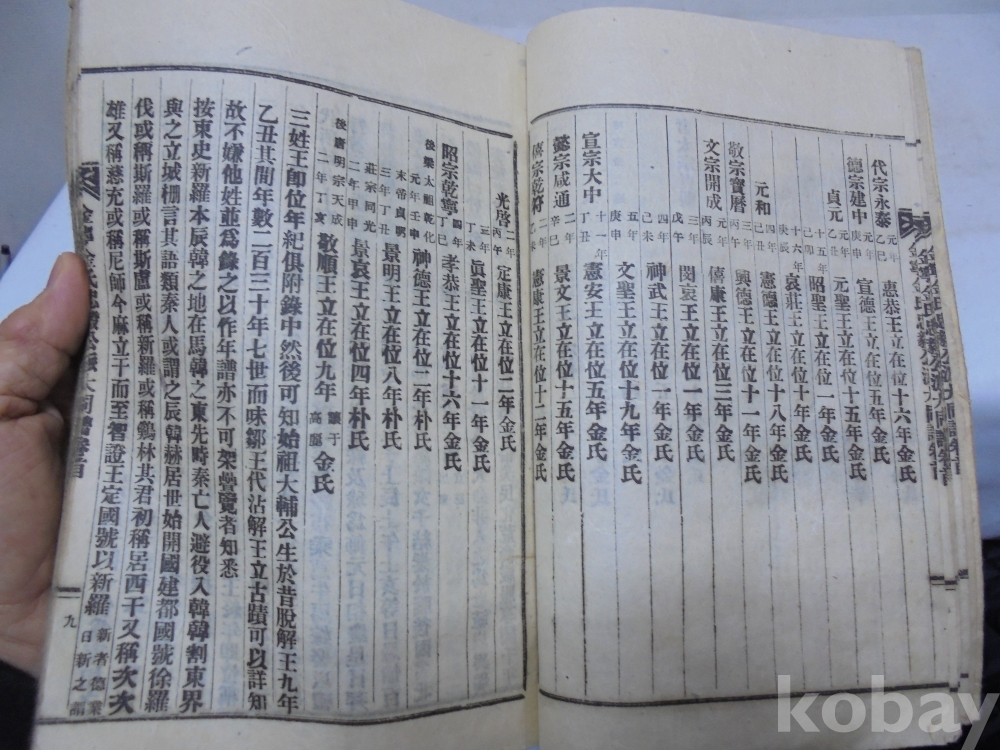 代宗永泰 元年乙巳 惠恭王立在位十六年金氏
德宗建中 元年庚申 宣德王立在位五年金氏
貞元 元年乙丑 元聖王立在位十五年金氏
十五年己卯 昭聖王立在位一年金氏
十六年庚辰 哀莊王立在位九年金氏
元和 四年己丑 憲德王立在位十八年金氏
敬宗寶曆 二年丙午 興德王立在位十一年金氏
文宗開成 元年丙辰 僖康王立在位三年金氏
三年戊午 閔哀王立在位一年金氏
四年己未 神武王立在位一年金氏
五年庚申 文聖王立在位十九年金氏
宣宗大中 十一年丁丑 憲安王立在位五年金氏
懿宗咸通 二年辛巳 景文王立在位十五年金氏
僖宗乾符 二年乙未 憲康王立在位十二年金氏
光啓 二年丙午 定康王立在位二年金氏
三年丁未 眞聖王立在位十一年金氏
昭宗乾寧 四年丁巳 孝恭王立在位十六年金氏
後梁太祖乾化 元年壬申 神德王立在位六年朴氏
末帝貞明 三年丁丑 景明王立在位八年朴氏
莊宗同光 二年甲申 景哀王立在位四年朴氏
後唐明宗天成 二年丁亥 敬順王立在位九年 讓于高麗 金氏
三姓王卽位年紀俱附錄中然後可知始祖大輔公生於昔脫解王九年
乙丑其間年數二百三十年七世而味鄒王代沾解王立古蹟可以詳知
故不嫌他姓並爲錄之以作年譜亦不可架疊覽者知悉
按東史新羅本辰韓之地在馬韓之東先時秦亡人避役入韓韓割東界
與之立城柵言其語類秦人或謂之辰韓赫居世始開國建都國號徐羅
伐或稱斯羅或稱斯盧或稱新羅或稱鷄林其君初稱居西干又稱次次
雄又稱慈充或稱尼師今麻立干而至智證王定國號以新羅 新者德業日新之謂
九
kobay